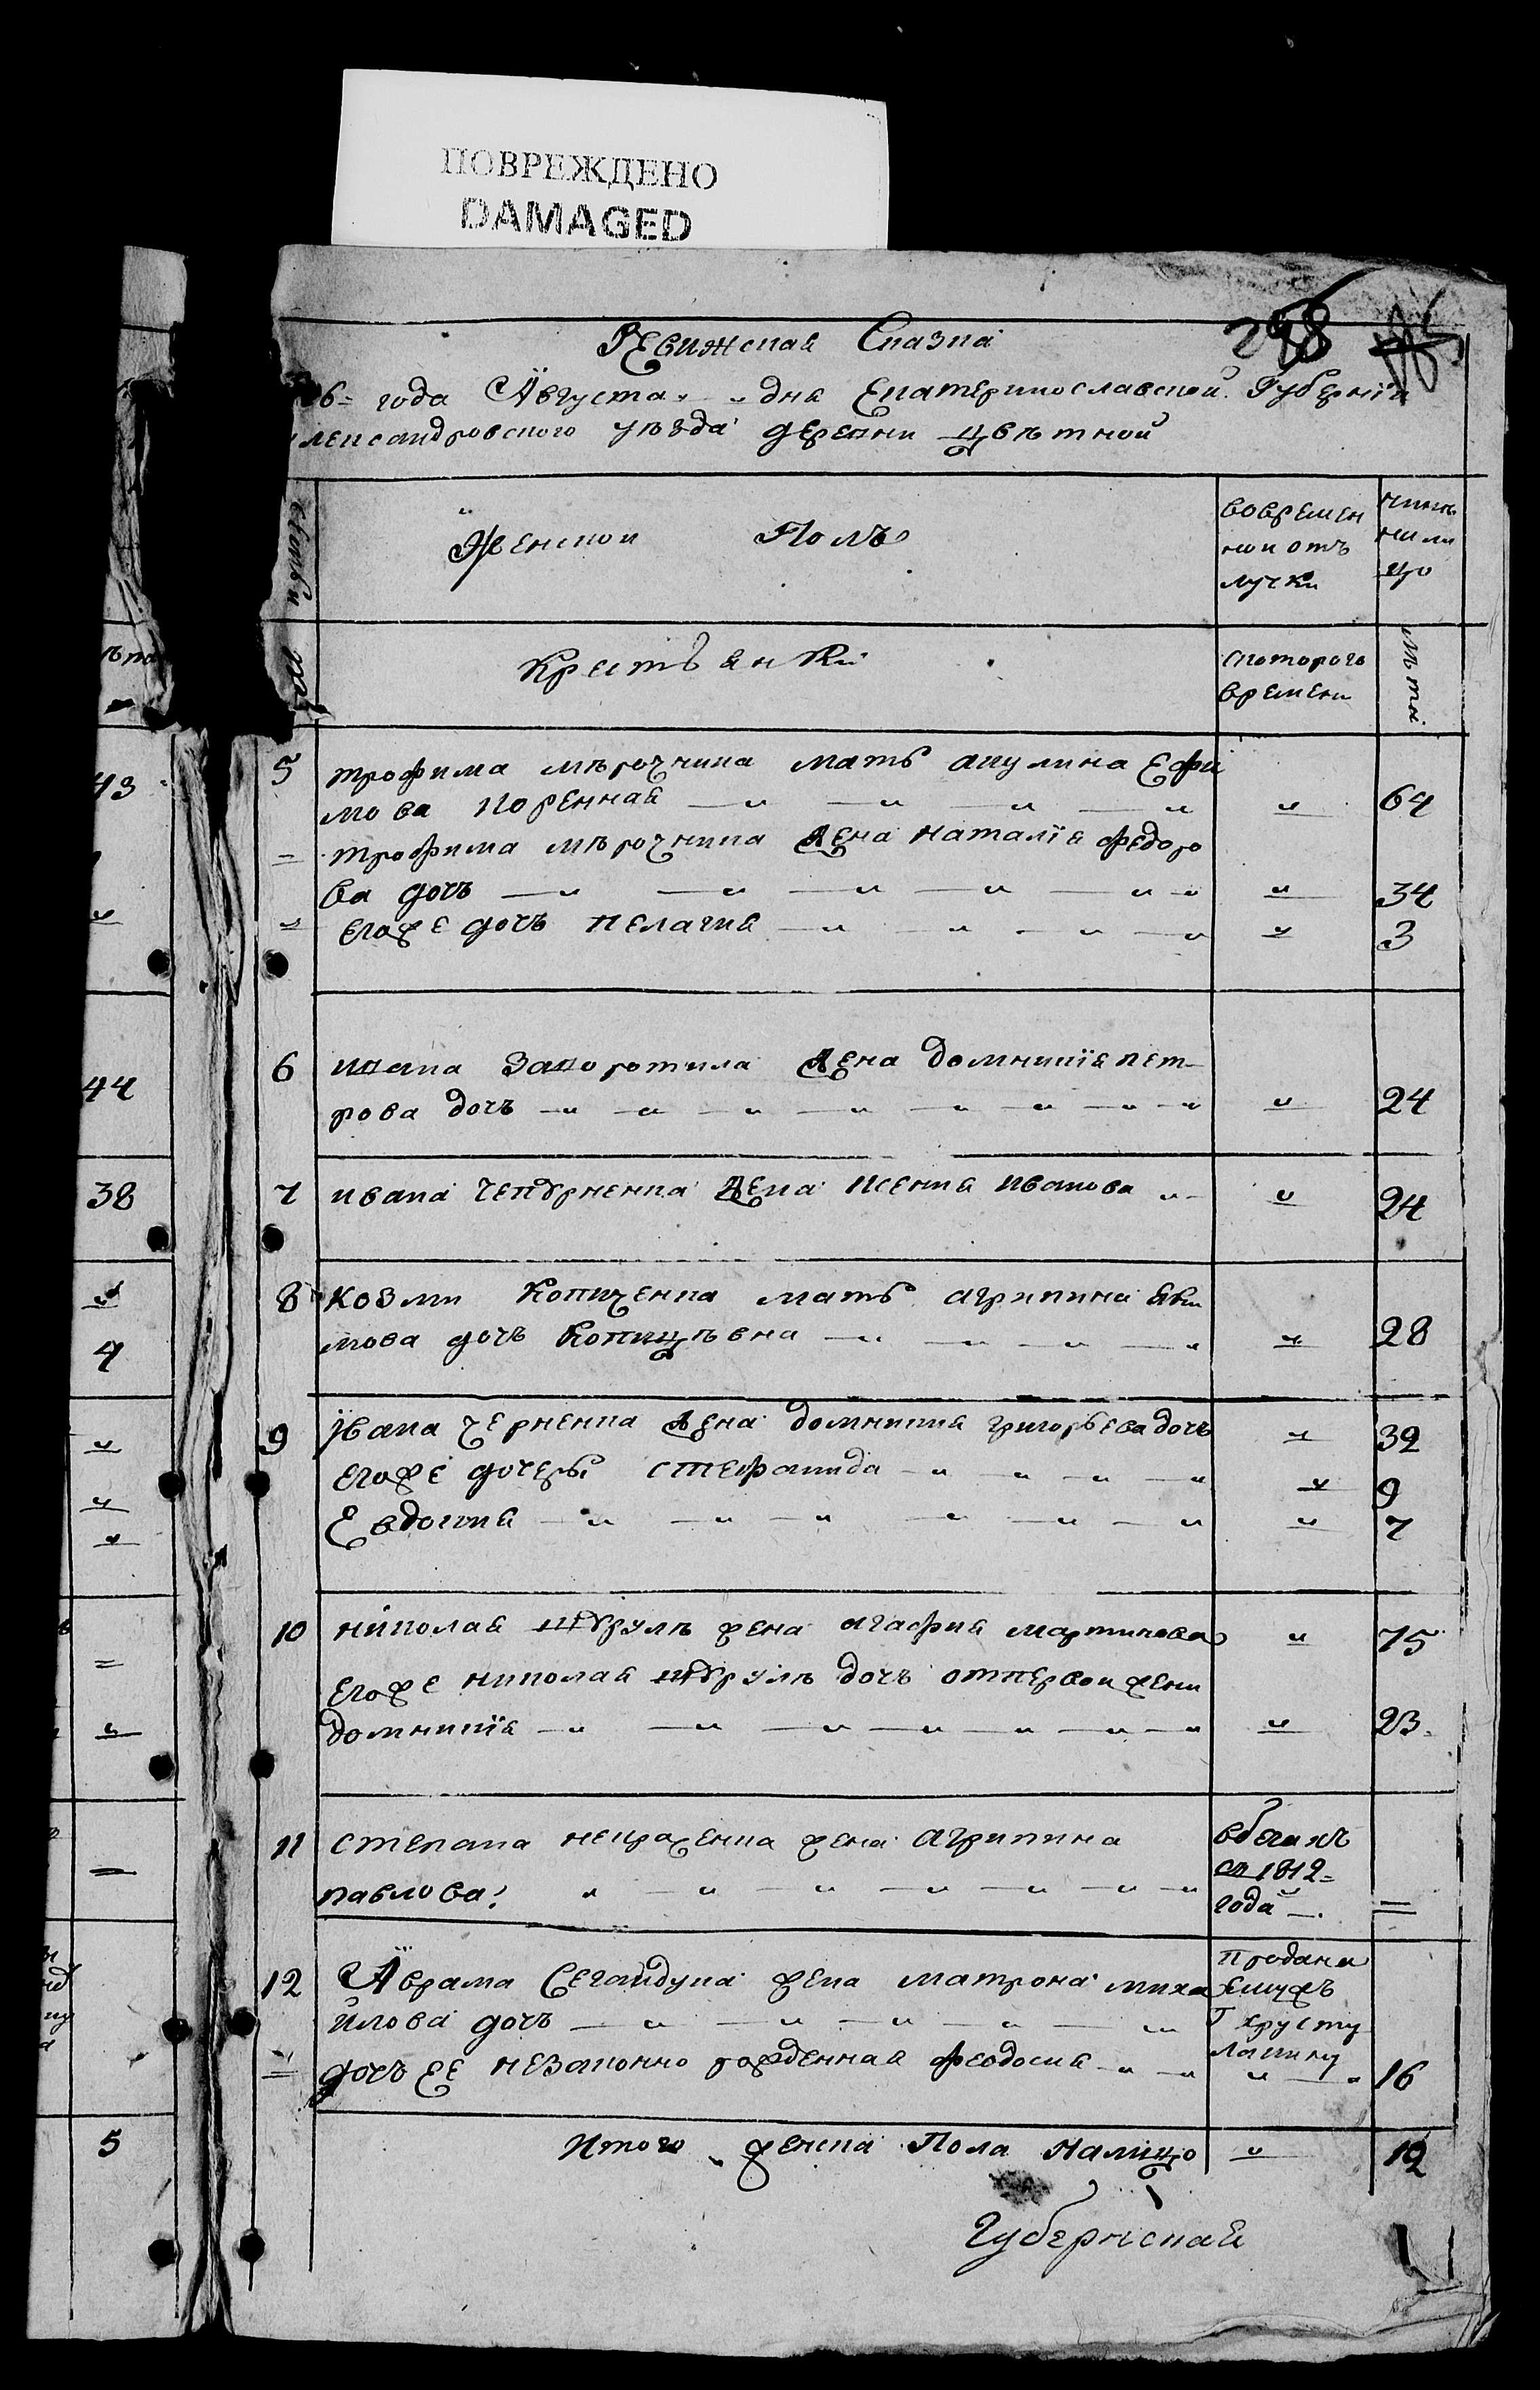 ПОВРЕЖДЕНО
DAMAGED
298
Ревижская Сказка
6= года Августа „ „ дня Екатеринославской Губернїи
лександровского уѣзда деревни Цвѣтной
Женской Полъ
вовремен
ной отъ
лучки
нынѣ
нали
цо
Крестьянки
скоторого
времени
лѣта
5 трофима мѣрочника мать акулина Ефи
мова коренная „ 64
= трофима мѣрочника жена наталїя федоро
ва дочь „ 34
= егоже дочь пелагия „ 3
6 жена домникїя пет-
рова дочь „ 24
7 ивана Чепурненка жена ксения иванова „ 24
8 козми Копиченка мать агрипина яки
мова дочь „ 28
9 Ивана черненка жена домникия григорьева дочь „ 39
егоже дочеры стефанида „ 9
Евдокия „ 7
10 николая жена агафия мартинова „ 75
егоже николая дочь отпервой жени
домникїя „ 23
11 степана жена агрипина
павлова
вбегахъ
сп 1812=
года =
12 Аврама жена матрона миха
йлова дочь
Продана
= дочь ее незаконно рожденная феодосия „ 16
Итого женска Пола налицо „ 12
Губернская
43
44
38
4
5